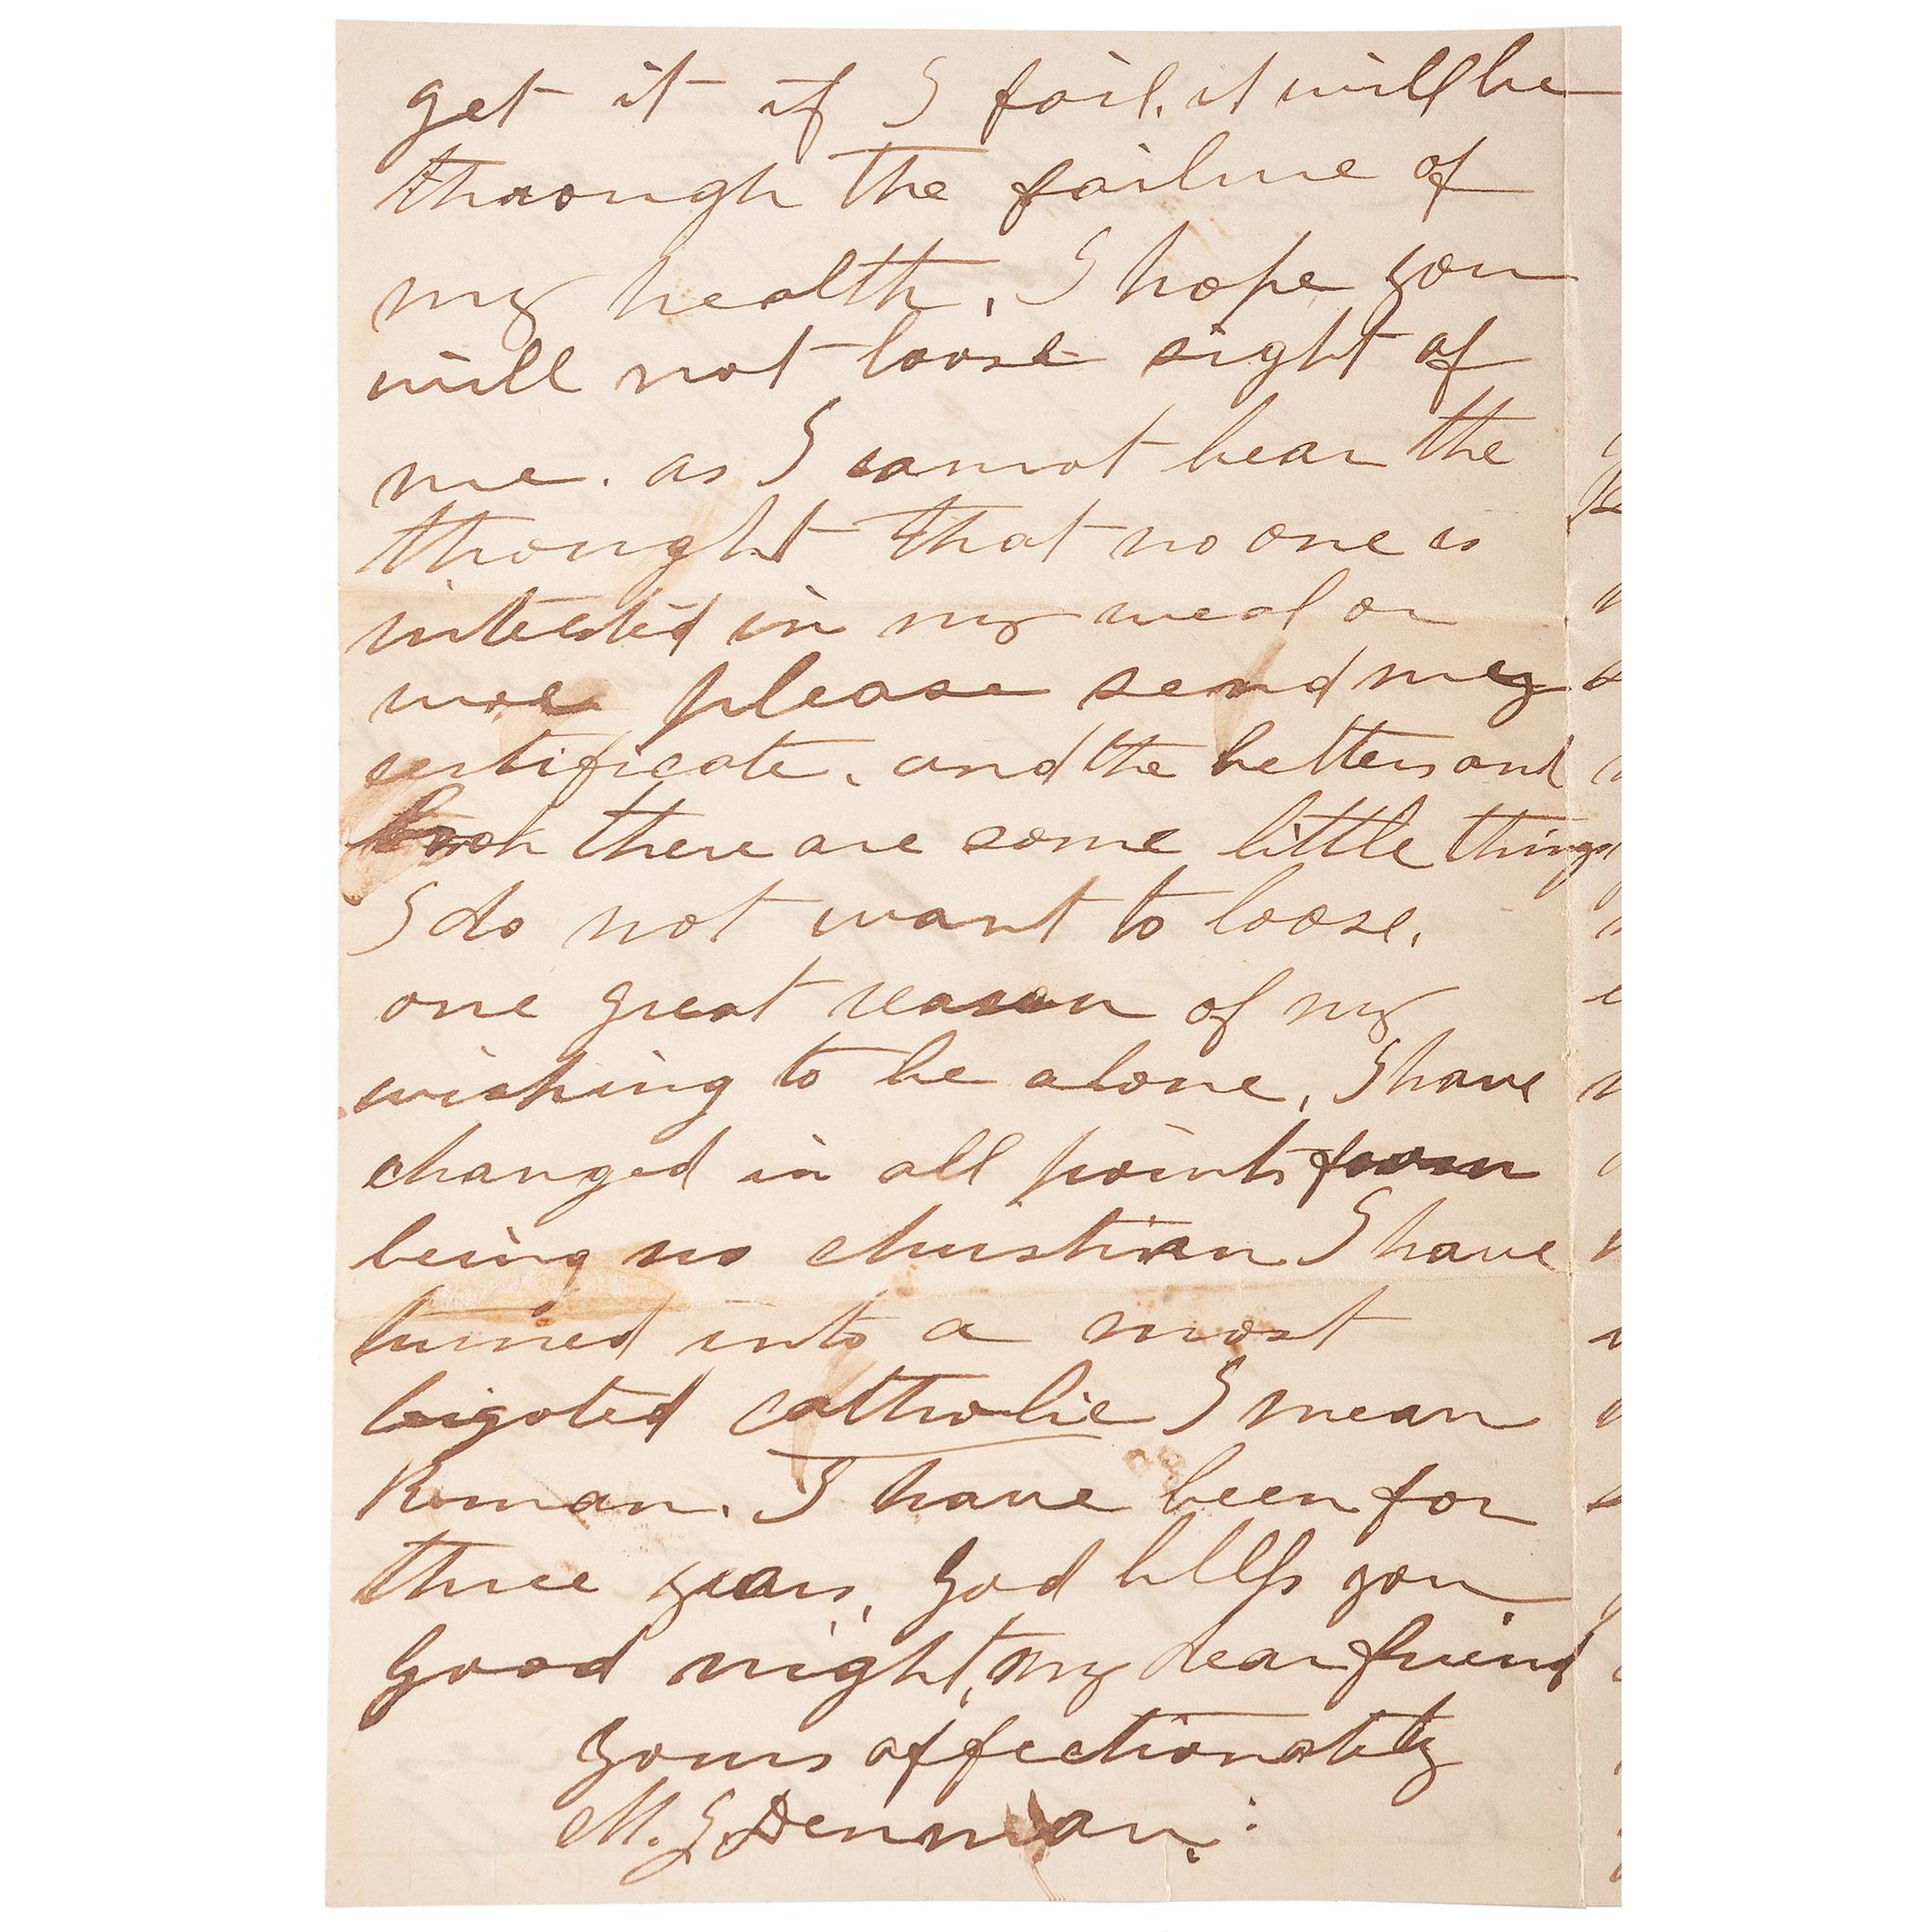 get it if I fail. it will be
through the failure of
my health, I hope you
will not loose sight of
me. as I cannot bear the
thought that no one is
in my weal or
woe please send me my
certificate, and the letters and
book there are some little things
I do not want to loose,
one great reason of my
wishing to be alone, I have
changed in all points from
being no christian I have
turned into a most
bigoted catholic I mean
Roman. I have been for
three years, God bless you
good night, my dear friend
yours affectionately
M. J. Denman.